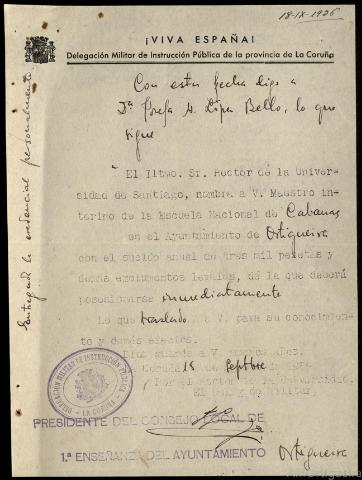 18-IX-1936
¡VIVA ESPAÑA!
Delegación Militar de Instrucción Pública de la provincia de La Coruña
Con esta fecha digo a
Dª Josefa Bello, lo que
sigue
"El Iltmo. Sr. Rector de la Univer-
sidad de Santiago, nombra a V. Maestro in-
terino de la Escuela Nacional de Cabanas
en el Ayuntamiento de Ortigueira
con el sueldo anual de tres mil pesetas y
demás emolumentos legales, de la que deberá
posesionarse inmediatamente
Lo que traslado a V. para su conocimien-
to y demás efectos.
Dios guarde a V. años.
Coruña 18 Septbre
Por el Rector de la Universidad,
El Militar,
DELEGACION MILITAR DE INSTRUCCION PUBLICA
LA CORUÑA
PRESIDENTE DEL CONSEJO LOCAL DE
1.ª ENSEÑANZA DEL AYUNTAMIENTO Ortigueira
Entregada la credencial personalmente